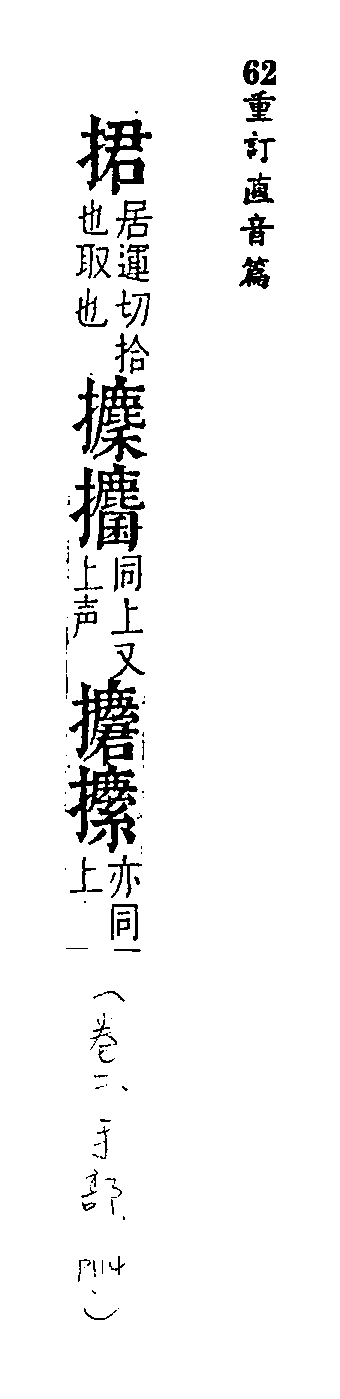 62重訂直音篇
捃居運切拾也取也攈攟同上又上声亦同上
（卷二、手部、P114.）